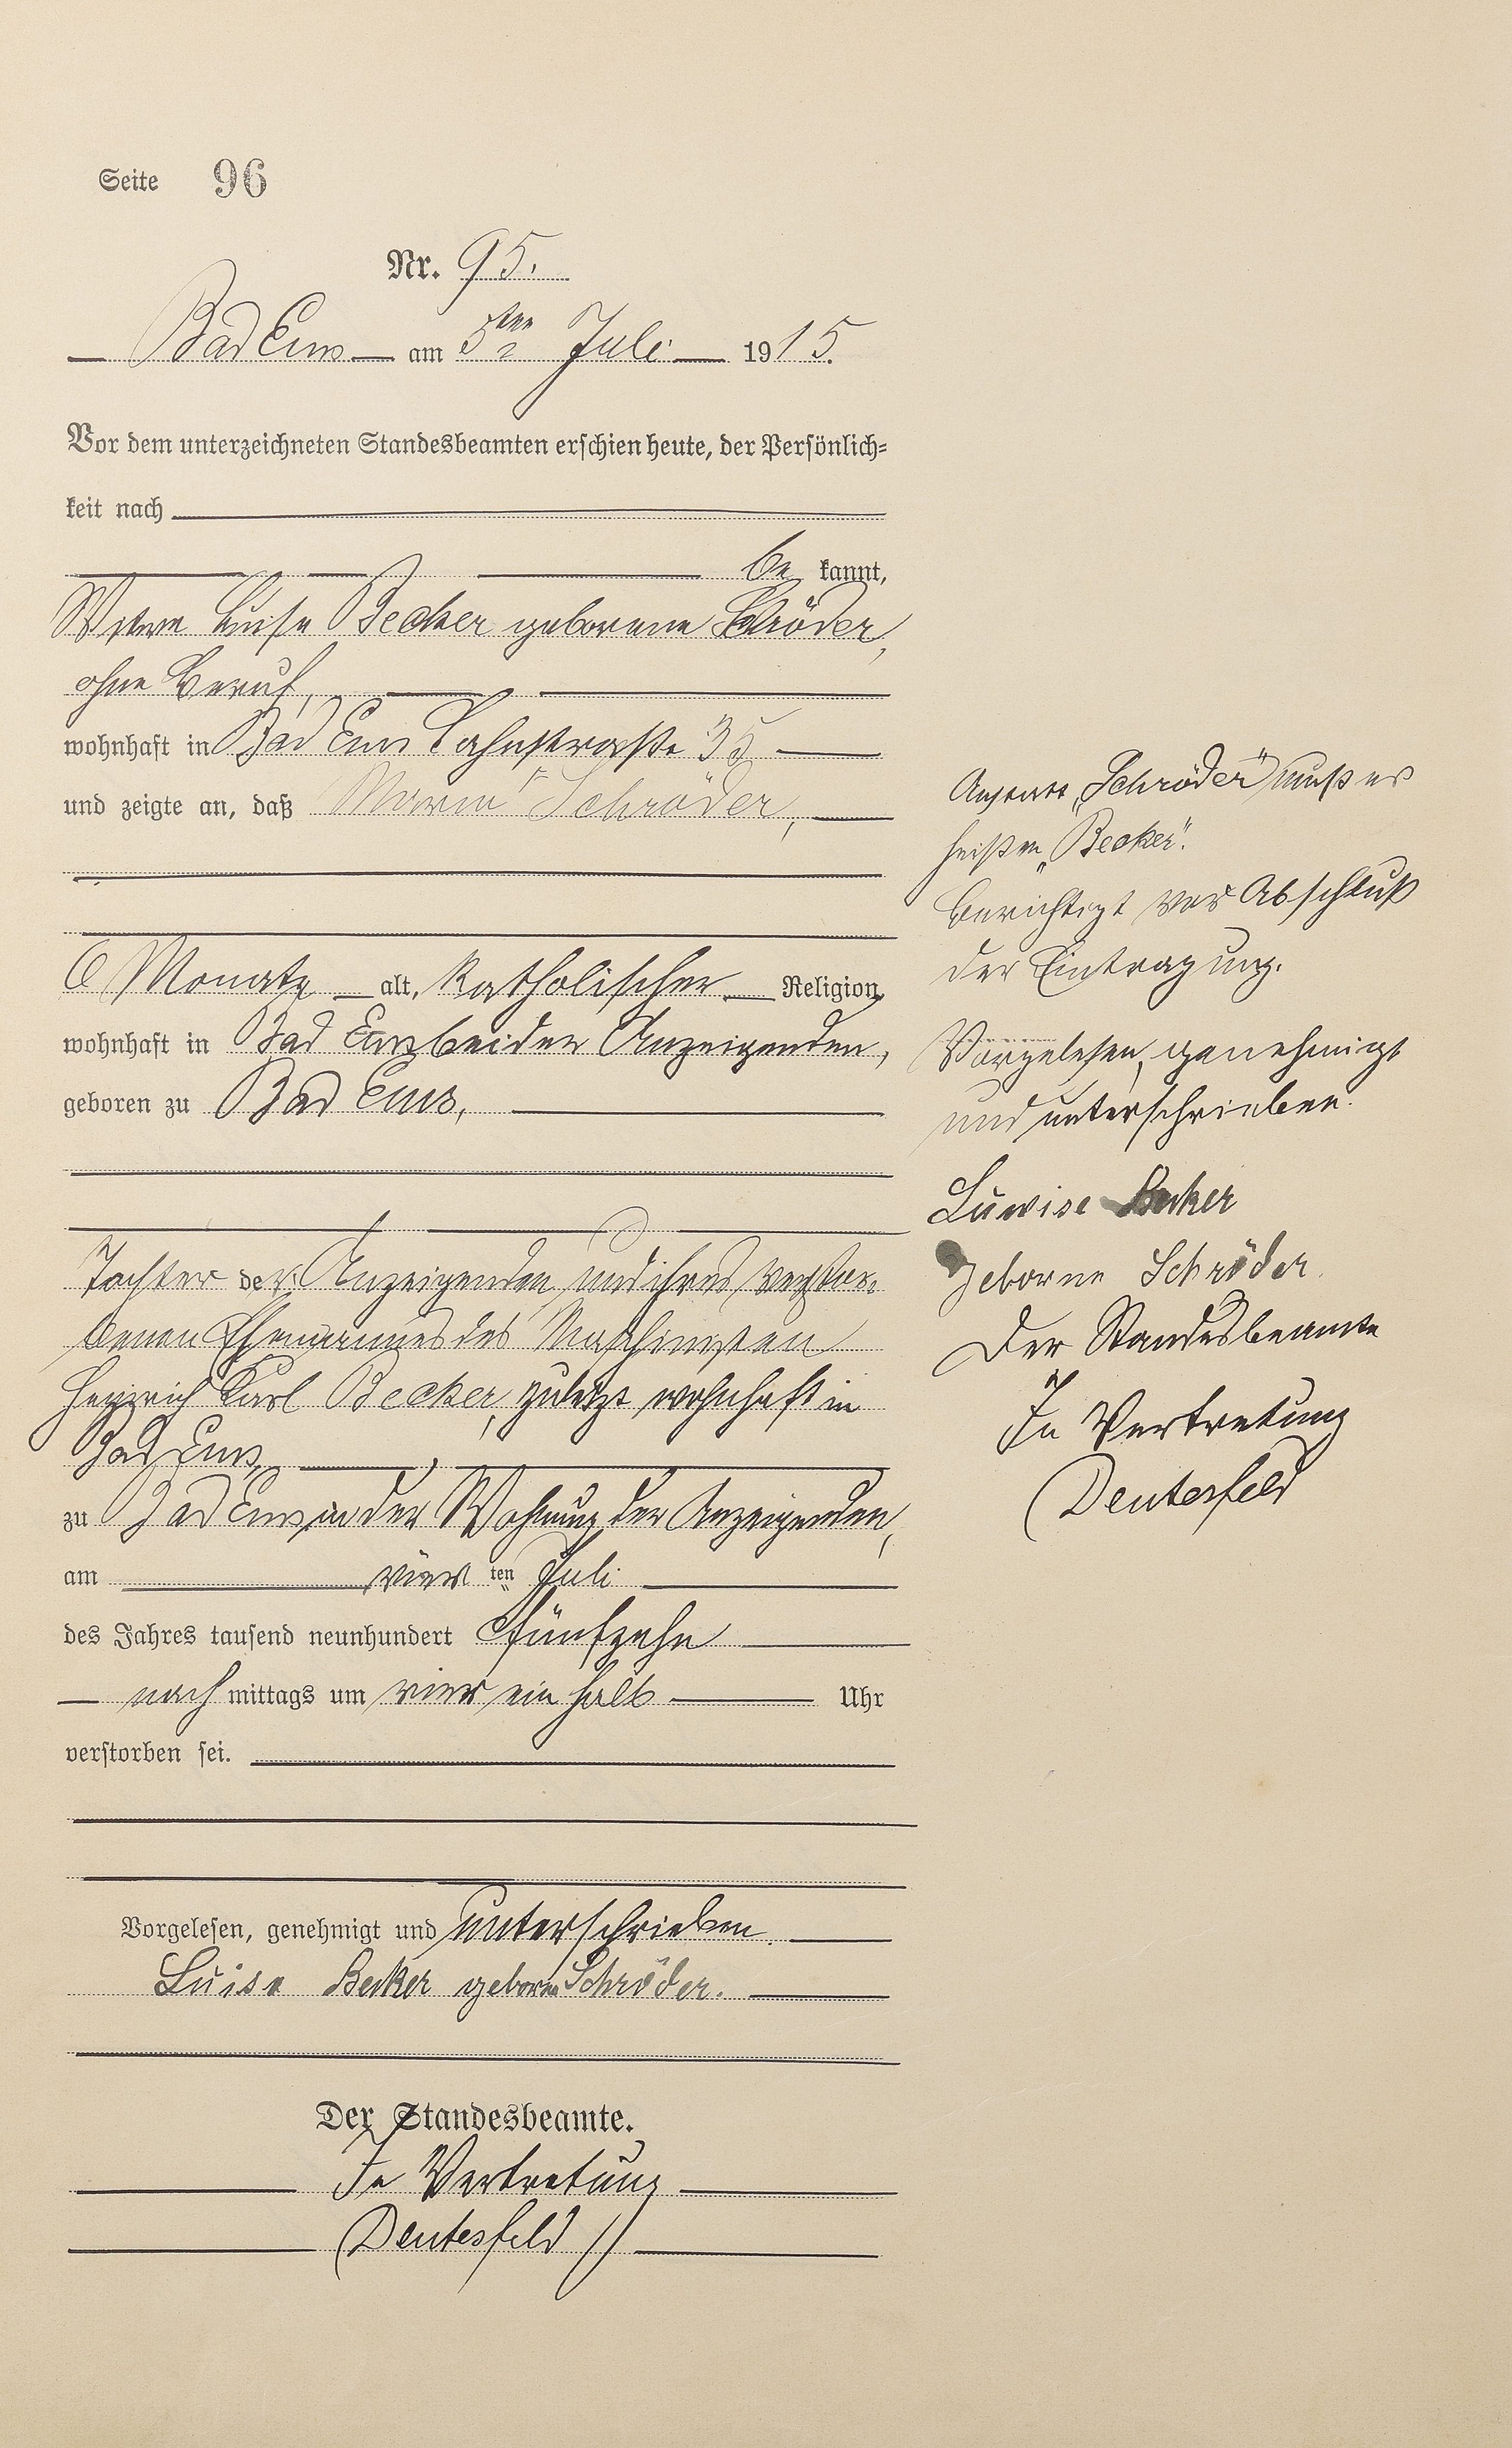 Seite 96
Nr. 95.
Bad Ems am 5ten Juli 1915.
Vor dem unterzeichneten Standesbeamten erschien heute, der Persönlich-
keit nach
be kannt,
Witwe Luise Becker geborene Schröder,
ohne Beruf,
wohnhaft in Bad Ems Lahnstraße 35
und zeigte an, daß Maria Schröder,
6 Monate alt, katholischer Religion,
wohnhaft in Bad Ems bei der Anzeigenden,
geboren zu Bad Ems,
Tochter der Anzeigenden und ihres verstor-
benen Ehemannes des Maschinisten
Heinrich Karl Becker, zuletzt wohnhaft in
Bad Ems,
zu Bad Ems in der Wohnung der Anzeigenden,
am vier ten Juli
des Jahres tausend neunhundert fünfzehn
nach mittags um vier ein halb Uhr
verstorben sei.
Vorgelesen, genehmigt und unterschrieben.
Luise Becker geborne Schröder.
Der Standesbeamte.
In Vertretung
Deutesfeld
Anstatt „Schröder“ muß es
heißen „Becker“.
Berichtigt vor Abschluß
der Eintragung.
Vorgelesen, genehmigt
und unterschrieben.
Luwise Becker
geborne Schröder.
Der Standesbeamte
In Vertretung
Deutesfeld